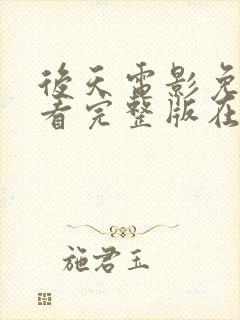 后天电影免
看完整版在
施君玉